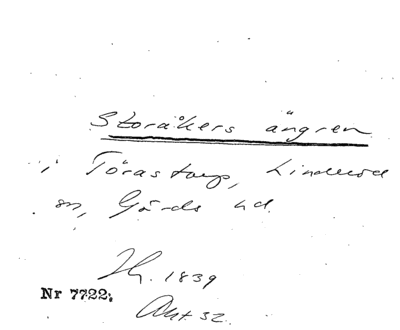 Storåkers ängren
i Törastorp, Linderöd
sn, Gärds hd.
Hg. 1839
Nr 7722.
Akt 32.